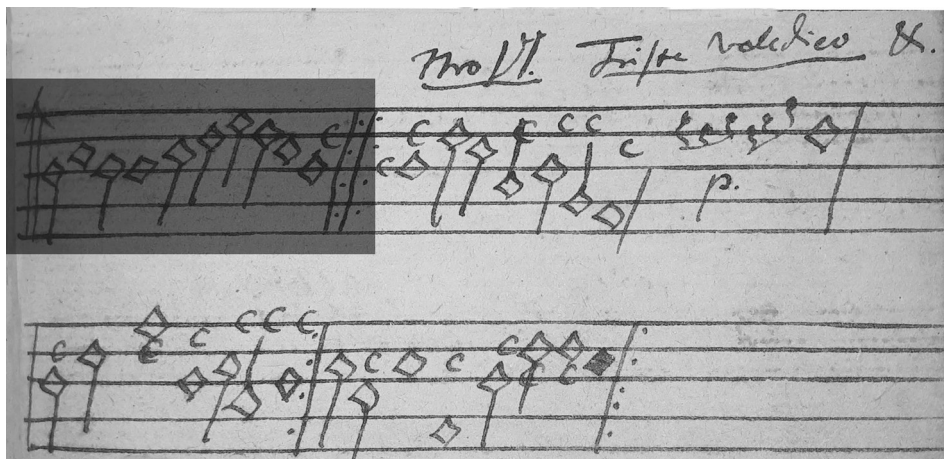 Nro VI. Triste Valedico &.
p.